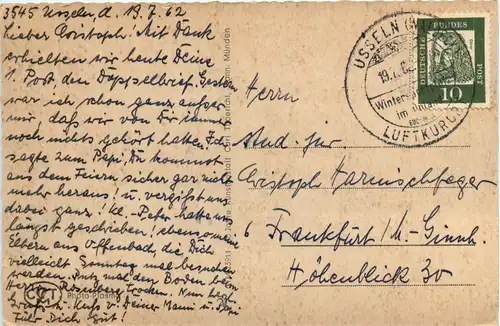 3545 Usseln, d. 19.7.62
Lieber Christoph! Mit Dank
erhielten wir heute Deine
1. Post, den Doppelbrief. Gestern
war ich schon ganz außer
mir, daß wir von Dir immer
noch nichts gehört hatten. Ich
sagte zum Papi, Du kommst
aus dem Feiern sicher gar nicht
mehr heraus! u. vergißt uns
dabei ganz! Kl.-Peter hatte uns
längst geschrieben! ebenso meine
Eltern aus Offenbach, die Dich
vielleicht Sonntag mal besuchen
werden. Putz mal den Boden beim
Herrn Rosenberg trocken. Nun
Kuß v. Deiner Mami u. Papi
Für Dich gut!
Herrn
stud. jur.
Christoph Harnischfeger
6 Frankfurt/M.-Ginnh.
Höhenblick 30
USSELN
19.7.62
Wintersport
im
LUFTKURORT
DEUTSCHE BUNDESPOST
10
Photo-Plasma
München